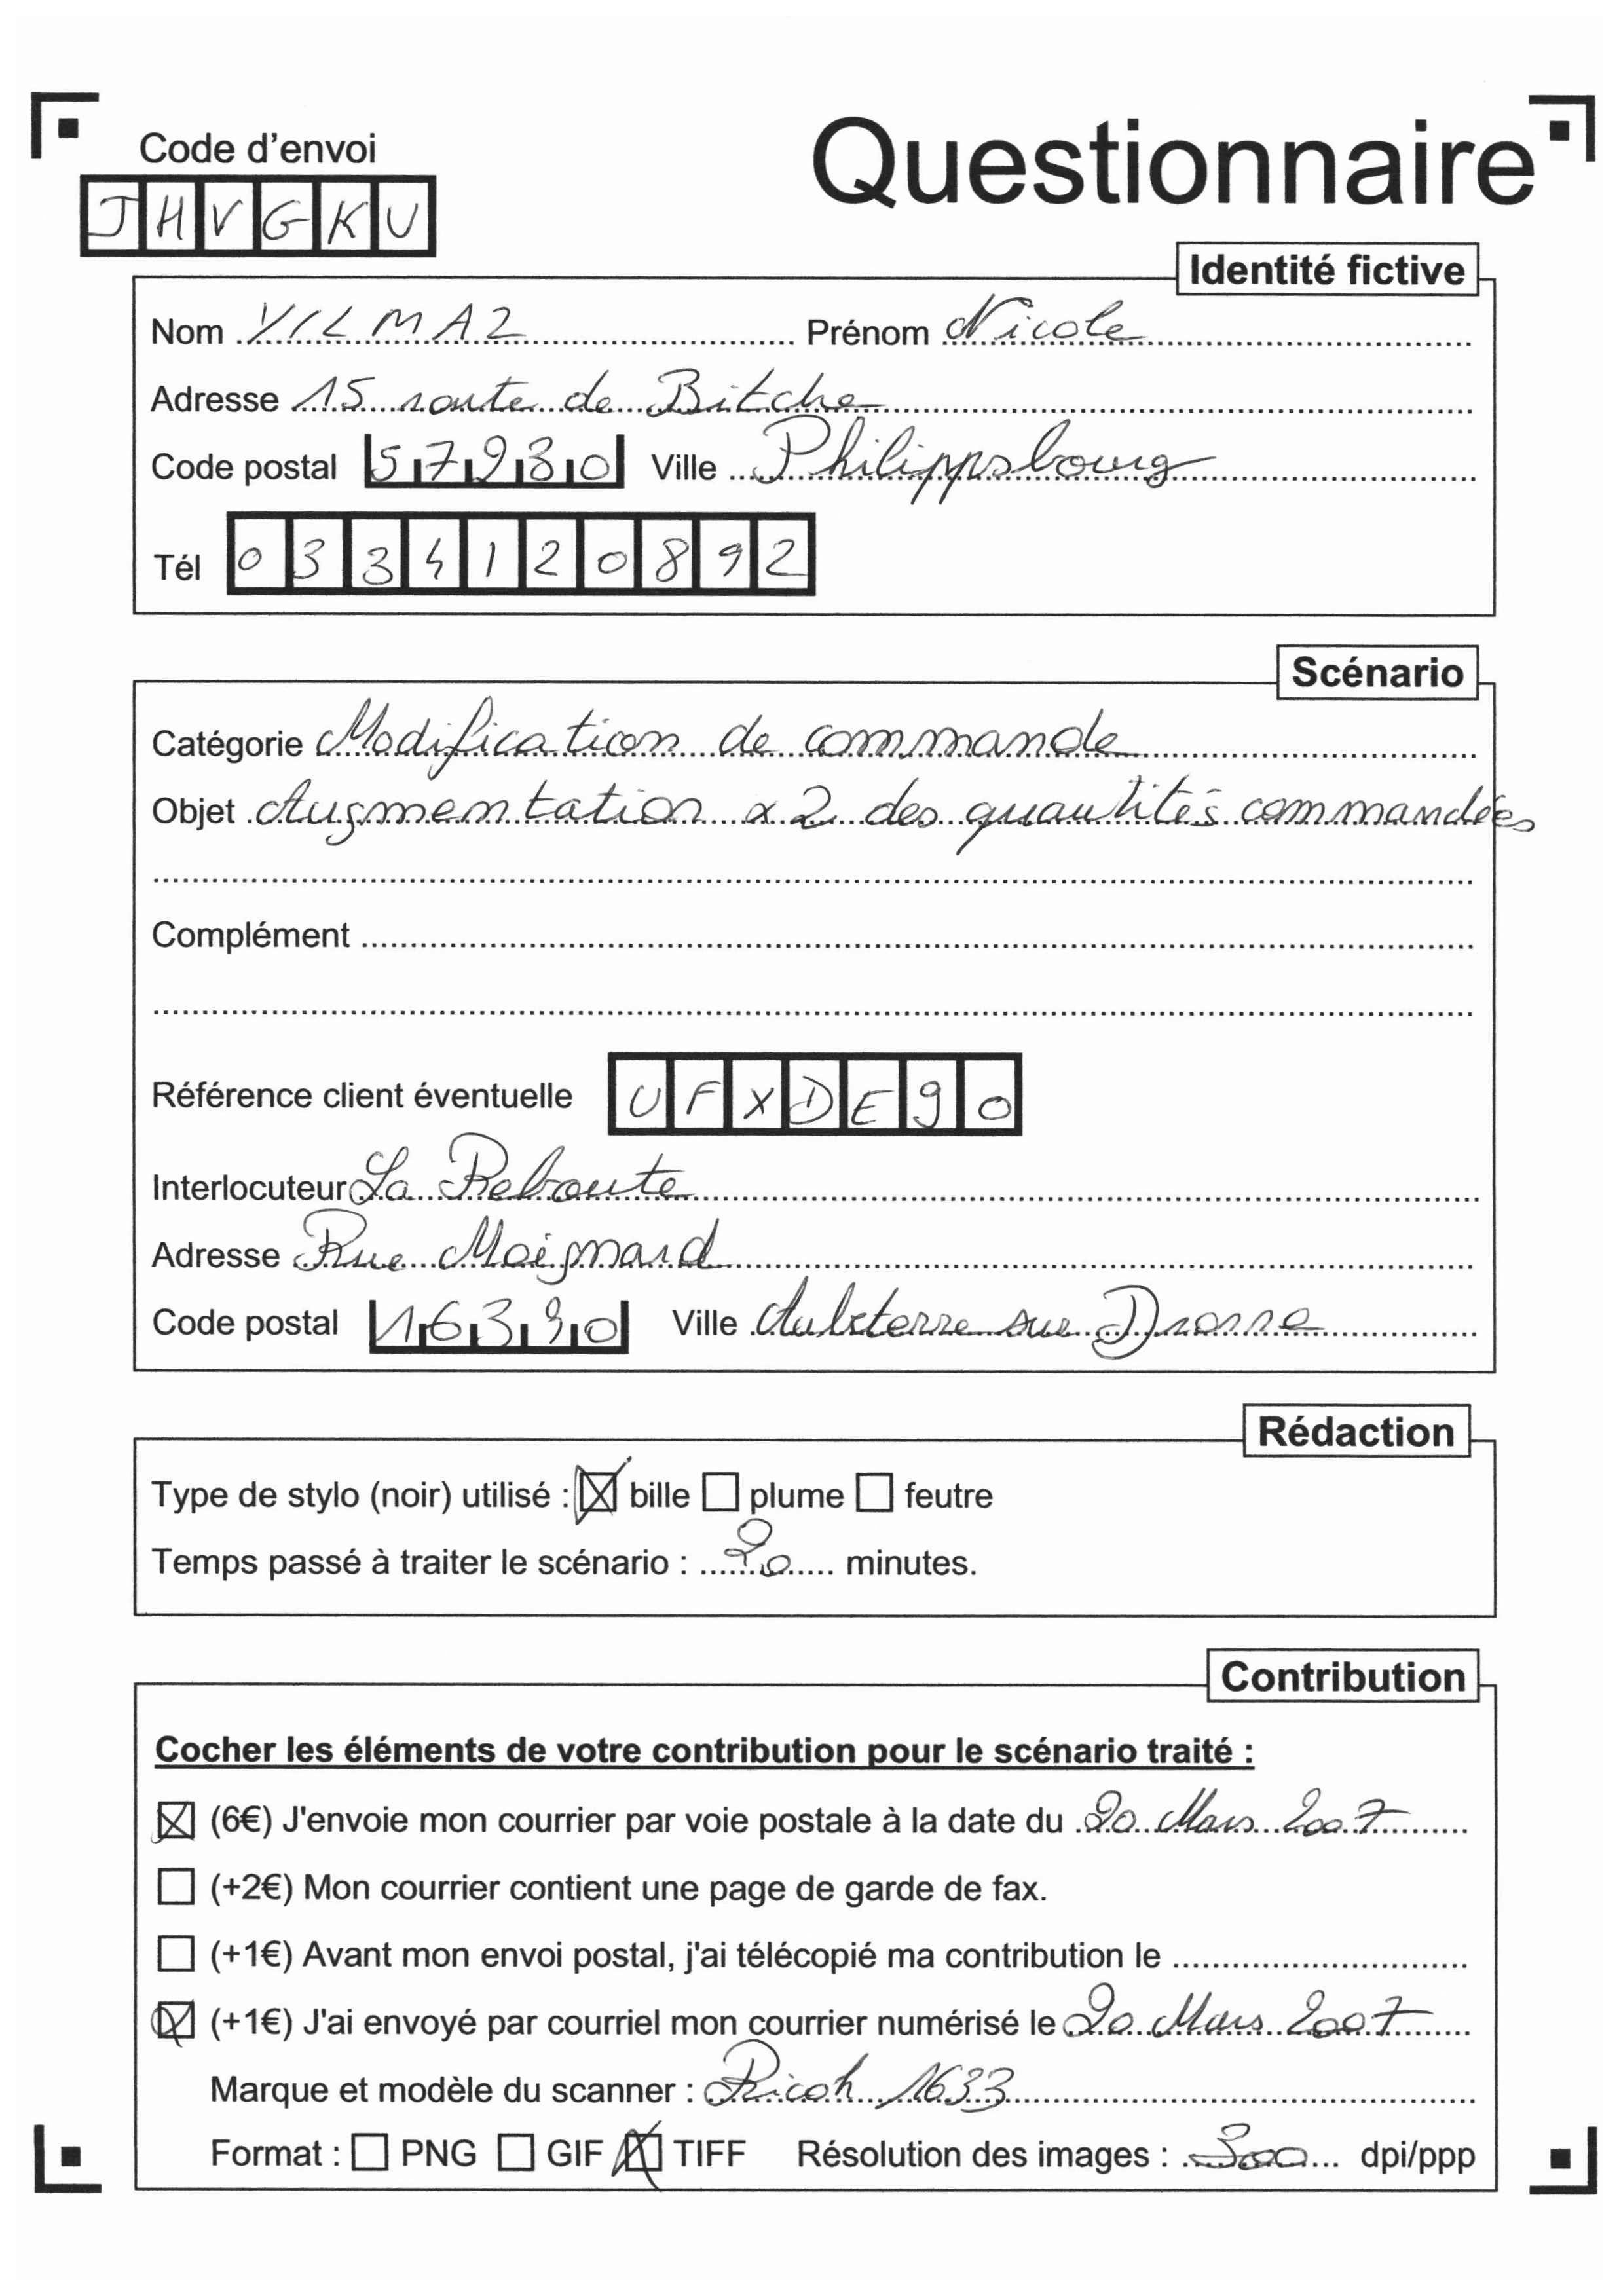 Code d'envoi
JHVGKU
Questionnaire
Identité fictive
Nom YILMAZ Prénom Nicole
Adresse 15 route de Bitche
Code postal 57930 Ville Philippsbourg
Tél 0334120892
Scénario
Catégorie Modification de commande
Objet Augmentation x 2 des quantités commandées
Complément
Référence client éventuelle UFXDE90
Interlocuteur La Reboute
Adresse Rue Moignard
Code postal 16390 Ville Aubeterre sur Dronne
Rédaction
Type de stylo (noir) utilisé : bille plume feutre
Temps passé à traiter le scénario : 20 minutes.
Contribution
Cocher les éléments de votre contribution pour le scénario traité :
(6€) J'envoie mon courrier par voie postale à la date du 20 Mars 2007
(+2€) Mon courrier contient une page de garde de fax.
(+1€) Avant mon envoi postal, j'ai télécopié ma contribution le
(+1€) J'ai envoyé par courriel mon courrier numérisé le 20 Mars 2007
Marque et modèle du scanner : Ricoh 1633
Format : PNG GIF TIFF Résolution des images : 300 dpi/ppp